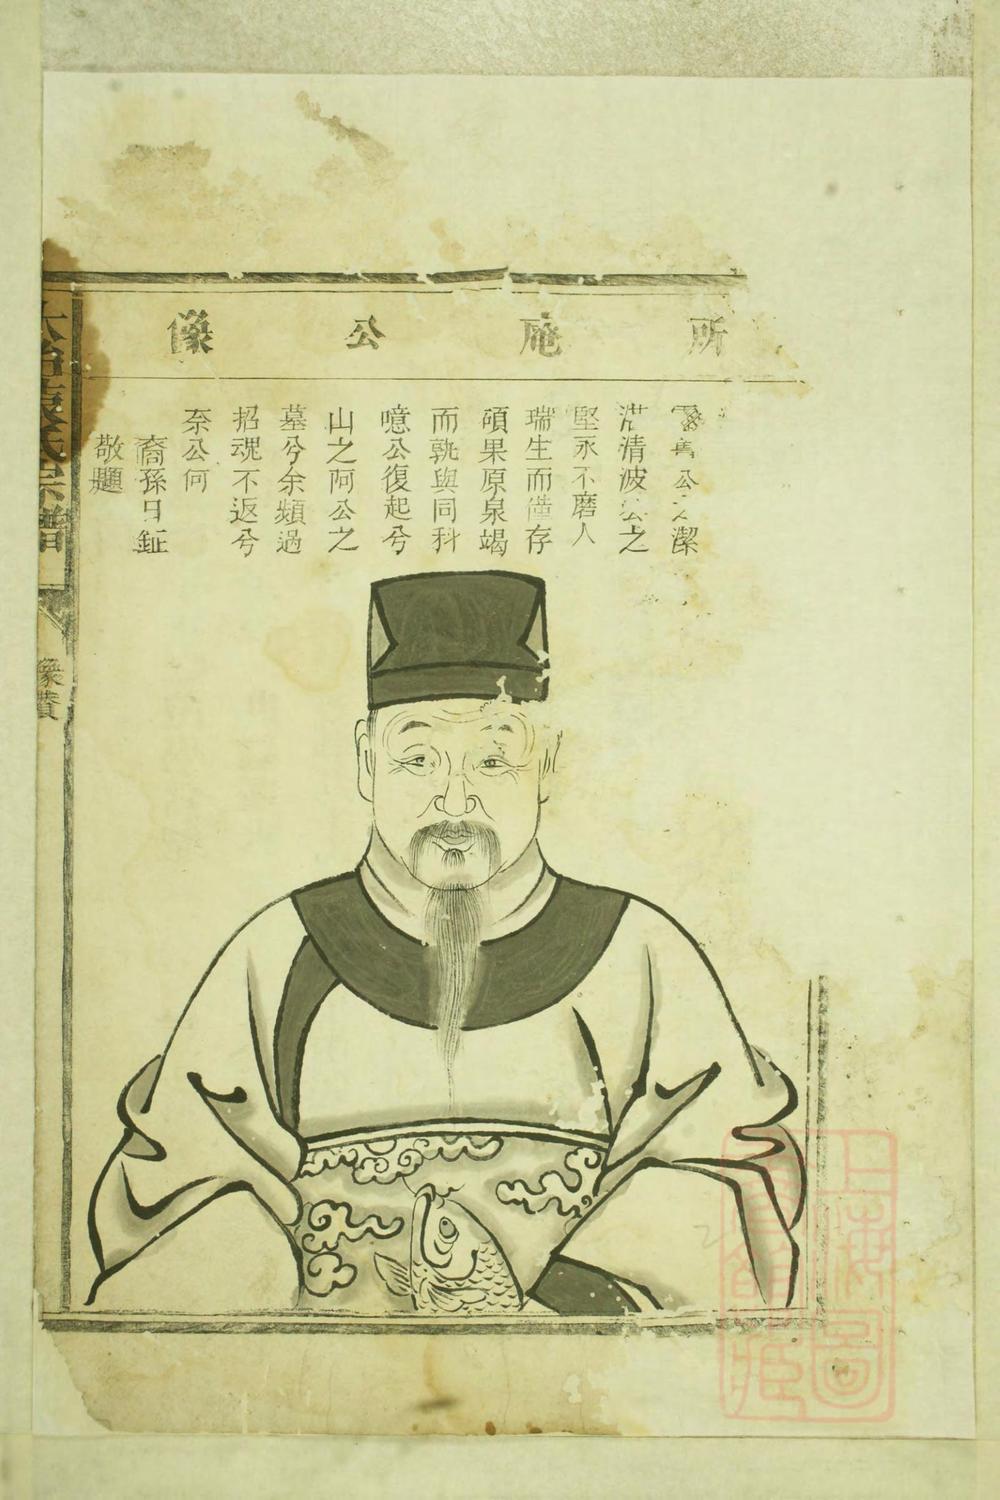 所庵公像
公之潔
清波公之
堅永不磨人
瑞生而僅存
碩果原泉竭
而孰與同科
噫公復起兮
山之阿公之
墓兮余頻過
招魂不返兮
奈公何
裔孫日鉦
敬題
氏宗譜
像贊
上海圖書館藏